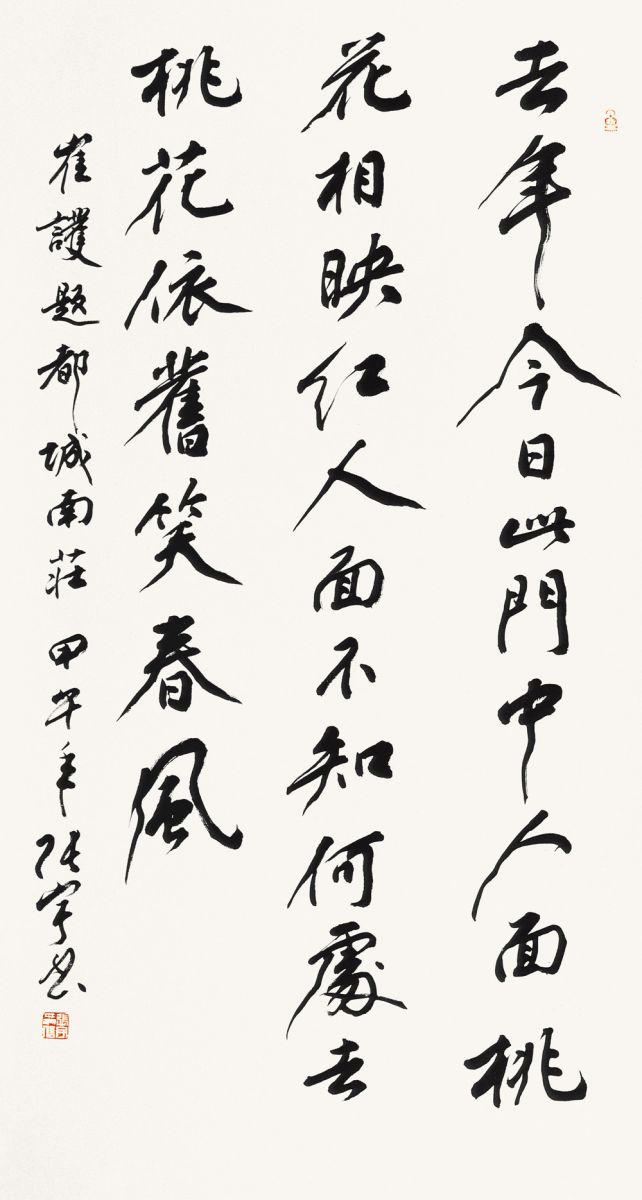 去年今日此門中人面桃
花相映红人面不知何處去
桃花依舊笑春風
崔護题都城南莊 甲午年 张宇书